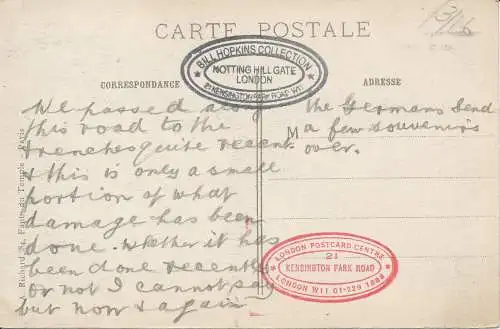 13/16
CARTE POSTALE
BILL HOPKINS COLLECTION
NOTTING HILL GATE
LONDON
21 KENSINGTON PARK ROAD W11
CORRESPONDANCE
ADRESSE
We passed along
this road to the
trenches quite recent
& this is only a small
portion of what
damage has been
done. Whether it has
been done recently
or not I cannot say
but now & again
the Germans send
M
a few souvenirs
over.
LONDON POSTCARD CENTRE
21
KENSINGTON PARK ROAD
LONDON W11 01-229 1888
Richard 84, Faub. du Temple - Paris